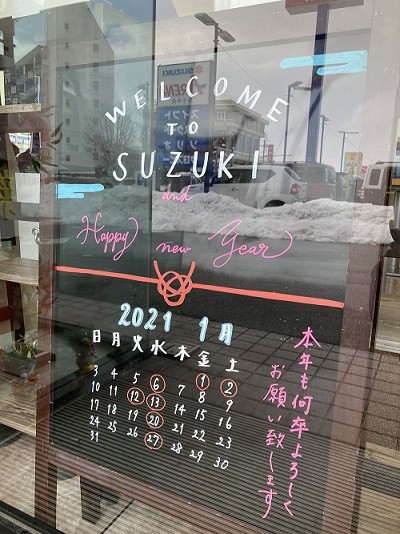 WELCOME
TO
SUZUKI
and
Happy new Year
2021 1月
日 月 火 水 木 金 土
1 2
3 4 5 6 7 8 9
10 11 12 13 14 15 16
17 18 19 20 21 22 23
24 25 26 27 28 29 30
31
本年も何卒よろしく
お願い致します
SUZUKI